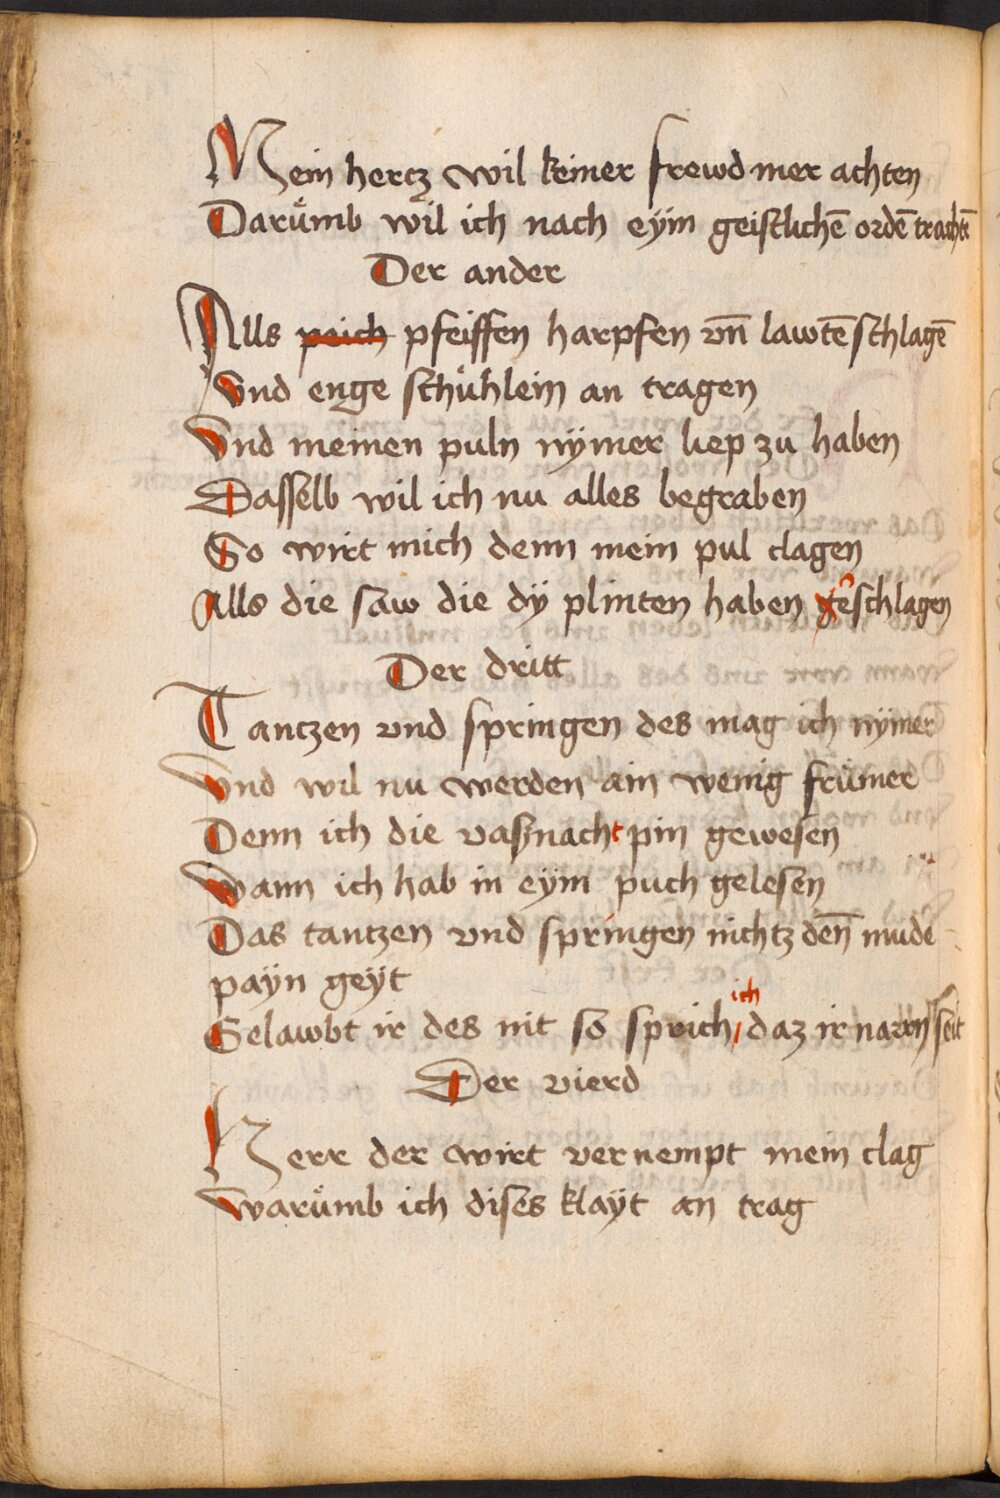 Mein hercz wil keiner frewd mer achten
Darümb wil ich nach eÿm geistlichē ordē trachtē
Der ander
Alls peich pfeiffen harpfen vn̄ lawtē schlagē
Vnd enge schühlein an tragen
Vnd meinen puln nÿmer liep zu haben
Dasselb wil ich nu alles begraben
So wirt mich denn mein pul clagen
Alls die saw die dÿ plinten haben geschlagen
Der dritt
Tantzen vnd springen des mag ich nÿmer
Vnd wil nu werden ain wenig frümer
Denn ich die vasznacht pin gewesen
Wann ich hab in eÿm puch gelesen
Das tantzen vnd springen nichtz den̄ mude
paÿn geÿt
Gelawbt ir des nit so sprich ich daz ir narrn seit
Der vierd
Herr der wirt vernempt mein clag
Warümb ich dises klaÿt an trag